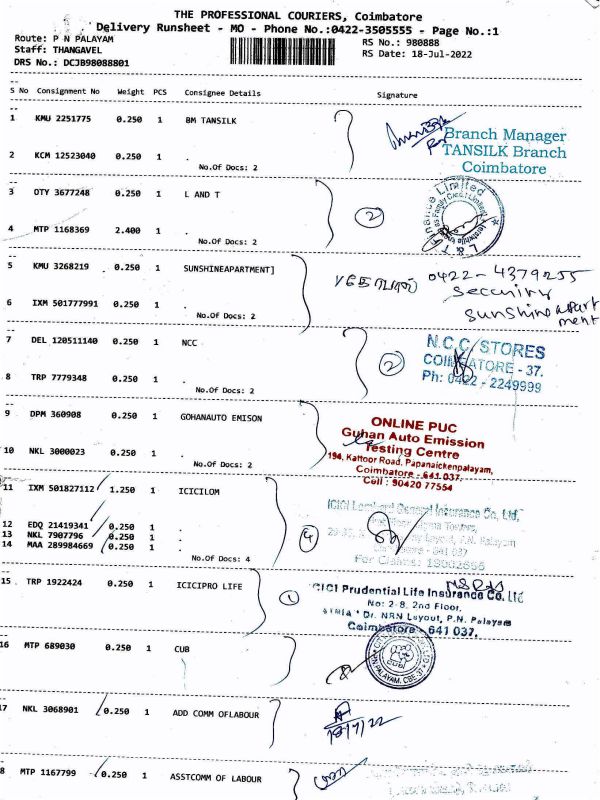 THE PROFESSIONAL COURIERS, Coimbatore
Delivery Runsheet - MO - Phone No.:0422-3505555 - Page No.:1
Route: P N PALAYAM
RS No.: 980888
Staff: THANGAVEL
RS Date: 18-Jul-2022
DRS No.: DCJB98088801
S No Consignment No Weight PCS Consignee Details Signature
1 KMU 2251775 0.250 1 BM TANSILK
Branch Manager
TANSILK Branch
Coimbatore
2 KCM 12523040 0.250 1 .
No.Of Docs: 2
3 OTY 3677248 0.250 1 L AND T
2
4 MTP 1168369 2.400 1 .
No.Of Docs: 2
5 KMU 3268219 0.250 1 SUNSHINEAPARTMENT]
0422-4379255
Security
Sunshine apart
ment
6 IXM 501777991 0.250 1 .
No.Of Docs: 2
7 DEL 120511140 0.250 1 NCC
2
N.C.C STORES
COIMBATORE - 37.
Ph: 0422 - 2249999
8 TRP 7779348 0.250 1 .
No.Of Docs: 2
9 DPM 360908 0.250 1 GOHANAUTO EMISON
ONLINE PUC
Guhan Auto Emission
Testing Centre
194, Kattoor Road, Papanaickenpalayam,
Coimbatore - 641 037.
Cell : 90420 77554
10 NKL 3000023 0.250 1 .
No.Of Docs: 2
11 IXM 501827112 1.250 1 ICICILOM
ICICI Lombard General Insurance Co, Ltd,
12 EDQ 21419341 0.250 1 .
13 NKL 7907796 0.250 1 .
14 MAA 289984669 0.250 1 .
4
No.Of Docs: 4
15 TRP 1922424 0.250 1 ICICIPRO LIFE
1
ICICI Prudential Life Insurance Co. Ltd
No: 2-8, 2nd Floor,
Dr. NRN Layout, P.N. Palayam
Coimbatore - 641 037.
16 MTP 689030 0.250 1 CUB
CUB
17 NKL 3068901 0.250 1 ADD COMM OFLABOUR
18/7/22
8 MTP 1167799 0.250 1 ASSTCOMM OF LABOUR